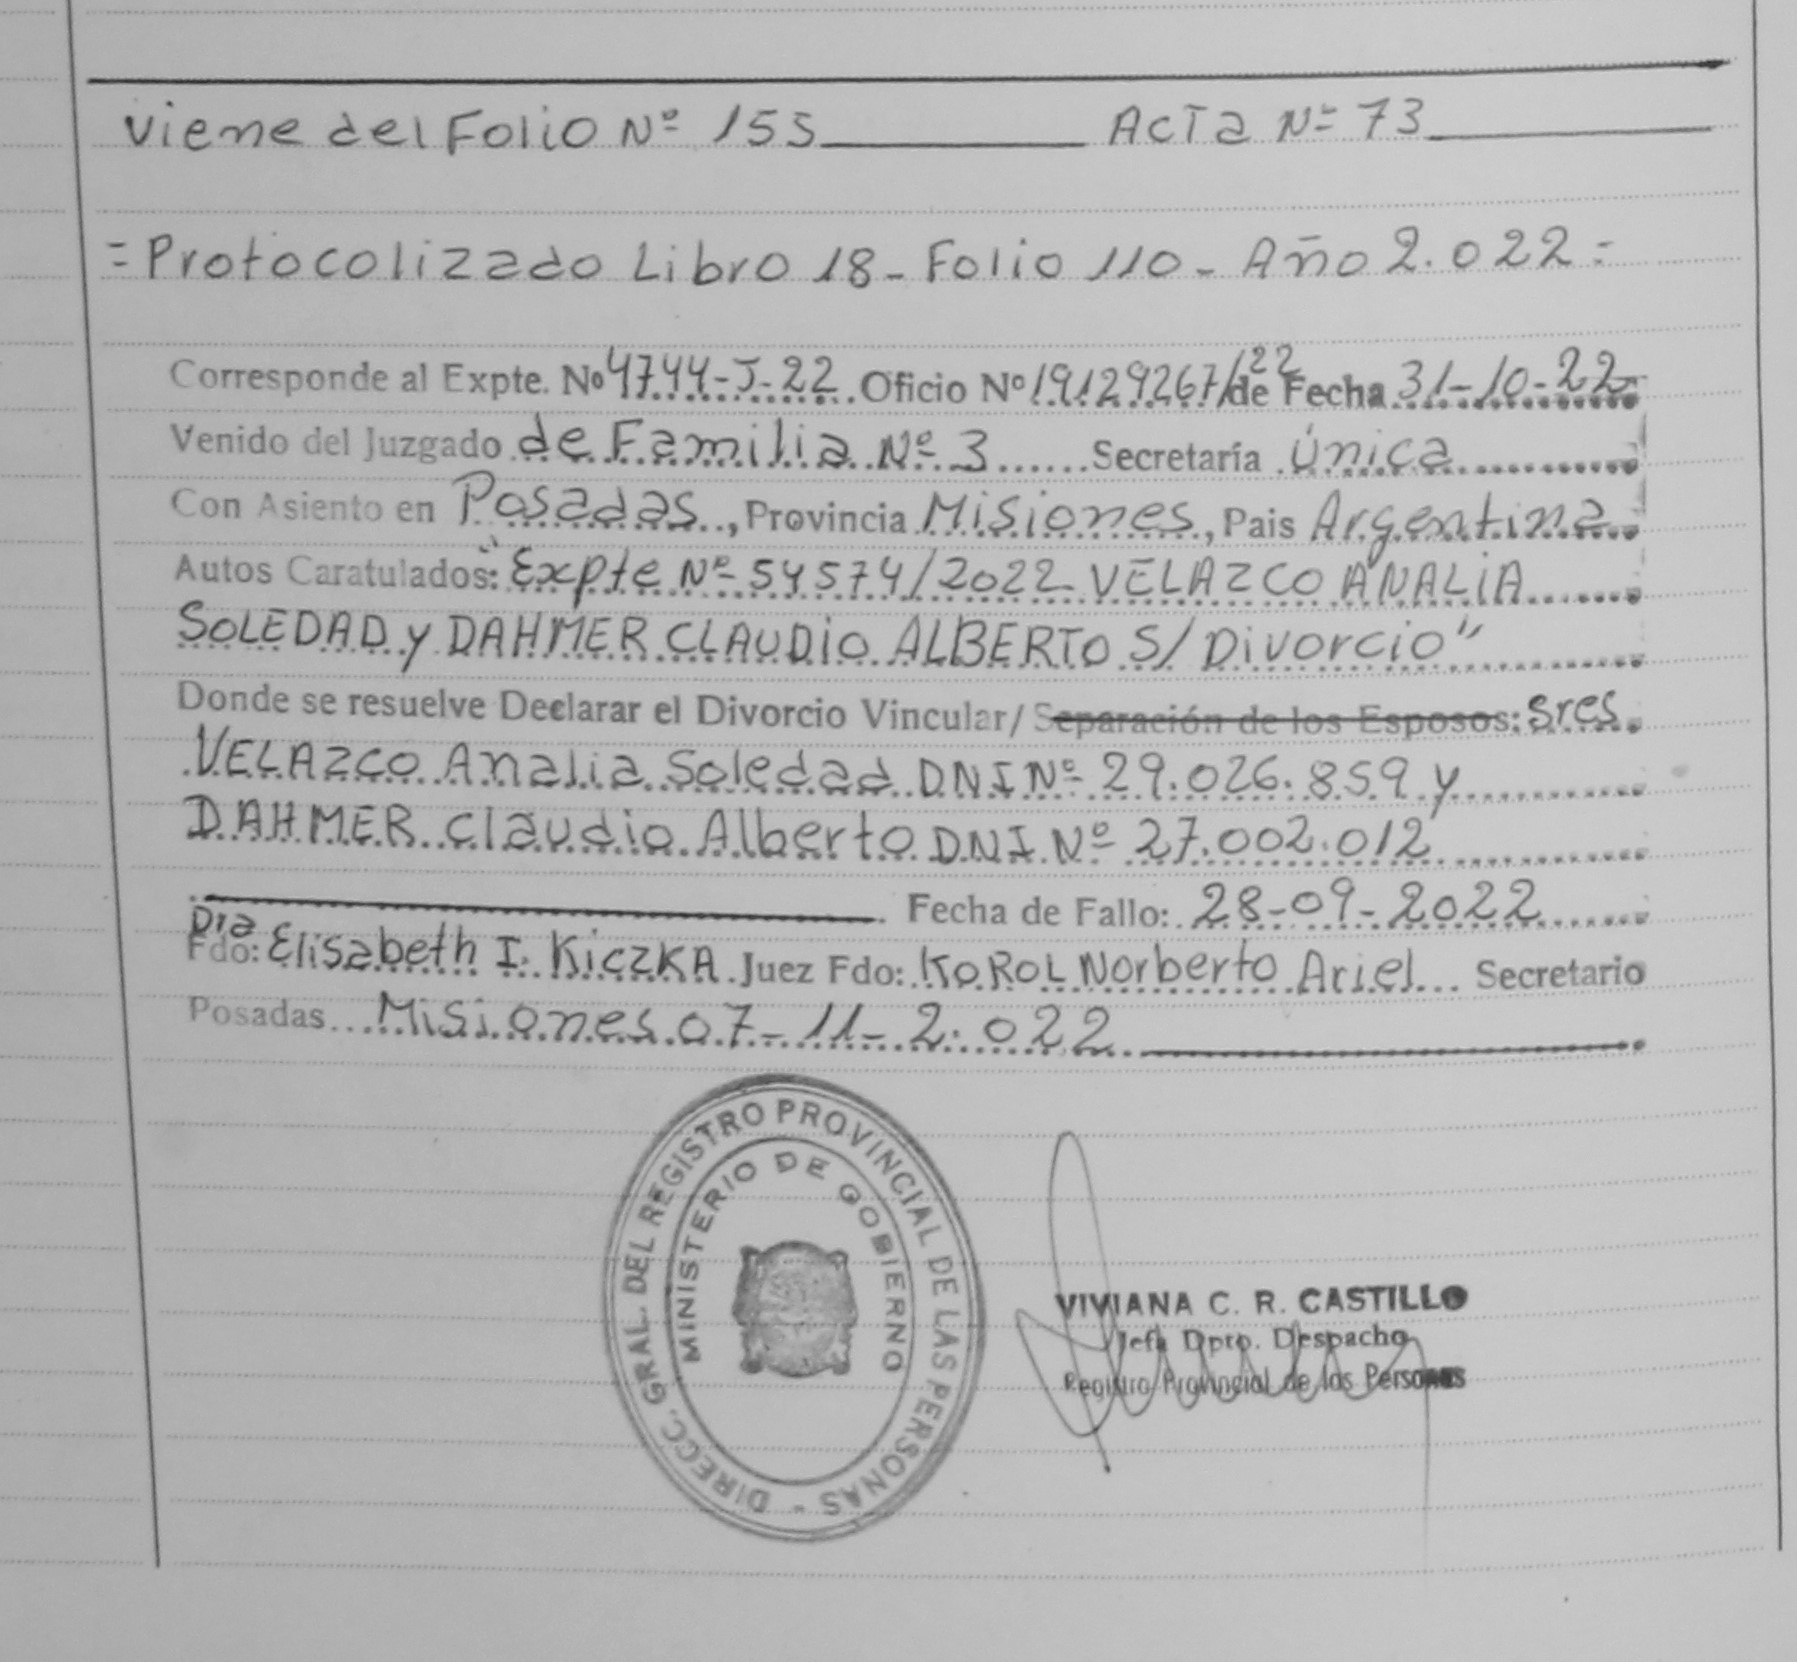 Viene del Folio Nº 155 Acta Nº 73
= Protocolizado Libro 18 - Folio 110 - Año 2.022 =
Corresponde al Expte. Nº 4744-J-22 Oficio Nº 19129267/22 de Fecha 31-10-22
Venido del Juzgado de Familia Nº 3 Secretaría Única
Con Asiento en Posadas, Provincia Misiones, Pais Argentina
Autos Caratulados: "Expte Nº 54574/2022 VELAZCO ANALIA
SOLEDAD y DAHMER CLAUDIO ALBERTO S/ Divorcio"
Donde se resuelve Declarar el Divorcio Vincular/ Separación de los Esposos: Sres.
VELAZCO Analia Soledad DNI Nº 29.026.859 y
DAHMER Claudio Alberto DNI Nº 27.002.012
Fecha de Fallo: 28-09-2022
Dra
Fdo: Elisabeth I. KICZKA Juez Fdo: KOROL Norberto Ariel Secretario
Posadas Misiones 07-11-2.022
DIRECC. GRAL. DEL REGISTRO PROVINCIAL DE LAS PERSONAS -
MINISTERIO DE GOBIERNO
VIVIANA C. R. CASTILLO
Jefa Dpto. Despacho
Registro Provincial de las Personas